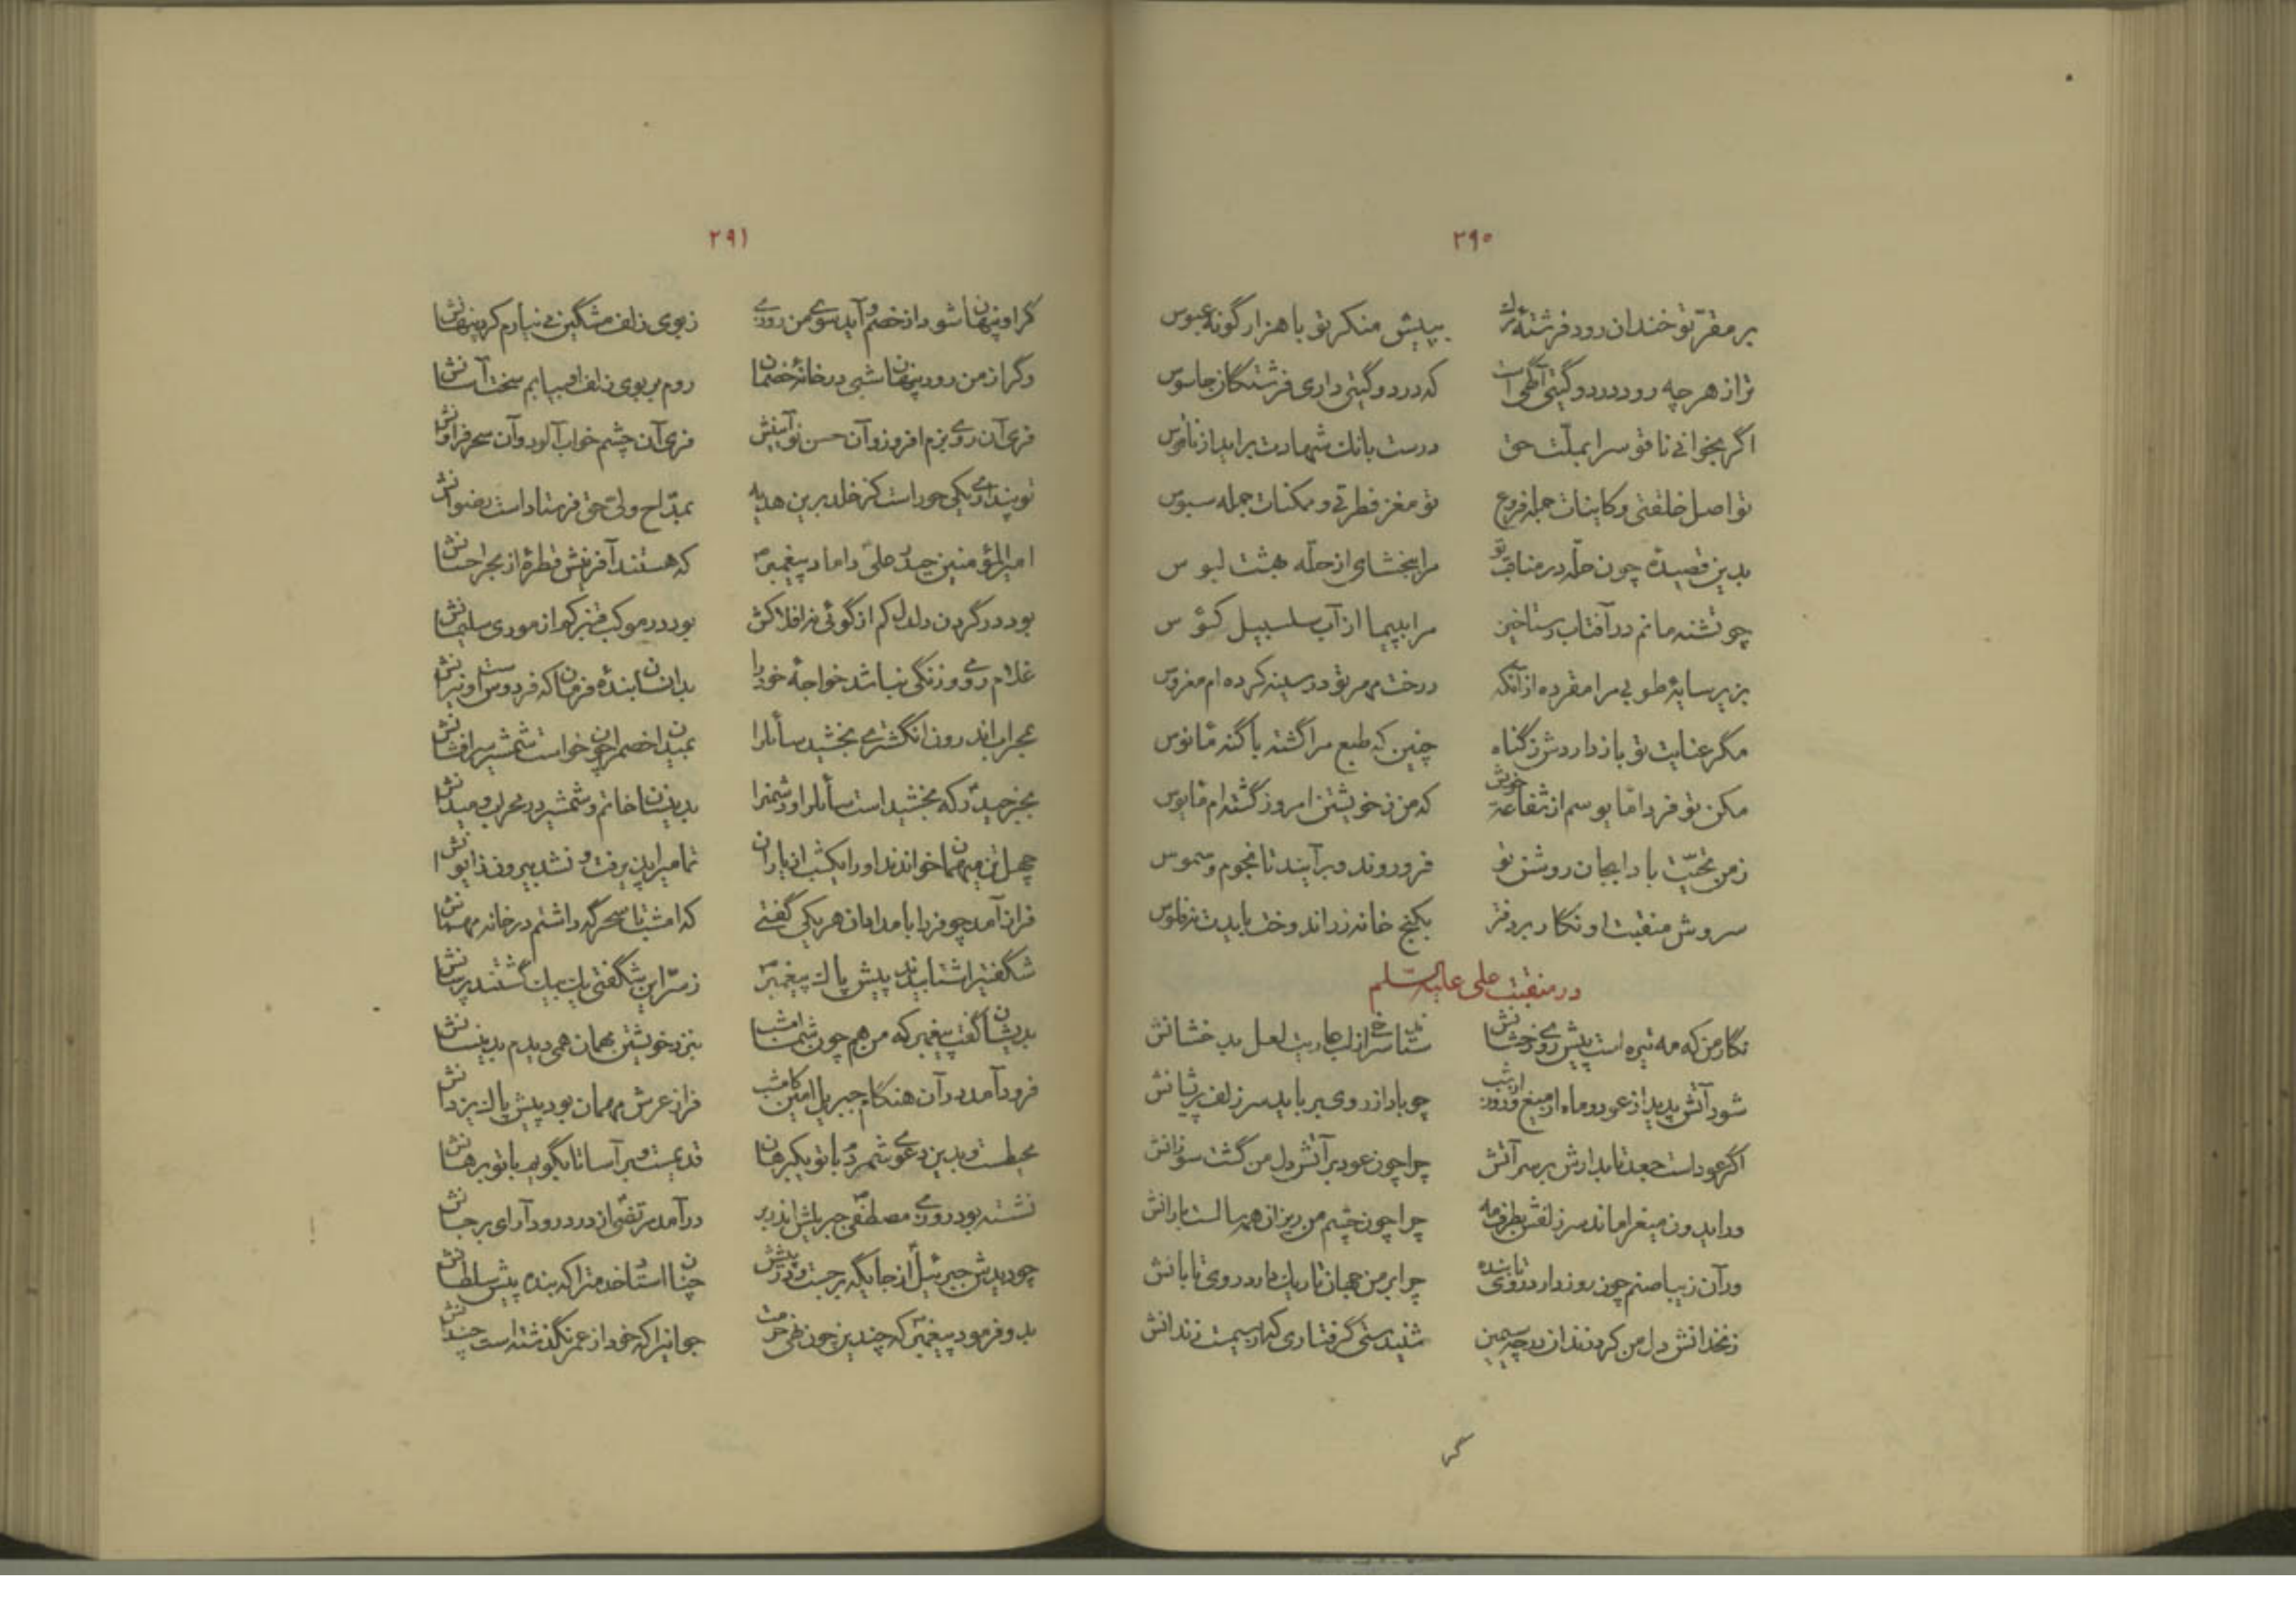 ۲۹۰
بر مقرّ تو خندان رود فرشتهٔ مرگ بپیش منکر تو با هزار گونه عبوس
ترا ز هر چه رود در دو گیتی آگهی است که در دو گیتی داری فرشتگان جاسوس
اگر بخوانی ناقوسرا بملّت حق درست بانک شهادت برآید از ناقوس
تو اصل خلقتی و کاینات جمله فروع تو مغز فطرتی و ممکنات جمله سبوس
بدین قصیدهٔ چون حلّه در مناقب تو مرا ببخشای از حلّه بهشت لبوس
چو تشنه مانم در آفتاب رستاخیز مرا بپیما از آب سلسبیل کؤس
بزیر سایهٔ طوبی مرا مقر ده از آنکه درخت مهر تو در سینه کرده‌ام مغروس
مگر عنایت تو باز داردش ز گناه چنین که طبع مرا گشته با گنه مأنوس
مکن تو فردا مأیوسم از شفاعت خویش که من ز خویشتن امروز گشته‌ام مأیوس
ز من تحیّت بادا بجان روشن تو فرو روند و برآیند تا نجوم و شموس
سروش منقبت او نگار بر دفتر بکنج خانه زر اندوخت بایدت نه فلوس
در منقبت علی علیه السّلم
نگار من که مه تیره است پیش روی رخشانش ستاند سرخی از لب عاریت لعل بدخشانش
شود آتش پدید از عود و ماه از میغ و روز از شب چو باد از روی برباید سر زلف پریشانش
اگر عود است جعد تابدارش بر سر آتش چرا چون عود بر آتش دل من گشت سوزانش
ور ایدون میغ را ماند سر زلفش بطرف مه چرا چون چشم من ریزان همه سالست بارانش
ور آن زیبا صنم چون روز دارد روی تابنده چرا بر من جهان تاریک دارد روی تابانش
زنخدانش دل من کرد زندان در چه سیمین شنیدستی گرفتاری که از سیمست زندانش
گر
۲۹۱
گر او پنهان شود از خصم و آید سوی من روزی ز بوی زلف مشگین می‌نیارم کرد پنهانش
وگر از من رود پنهان شبی در خانهٔ خصمان روم بر بوی زلف او بیابم سخت آسانش
فری آن روی بزم افروز و آن حسن نو آئینش فری آن چشم خواب آلود و آن سحر فراوانش
تو پنداری یکی حور است کز خلد برین هدیه بمدّاح ولیّ حق فرستاد است رضوانش
امیرالمؤمنین حیدر علی داماد پیغمبر که هستند آفرینش قطرهٔ از بحر احسانش
بود در گردن دلدل کم از گوئی نه افلاکش بود در موکب قنبر کم از موری سلیمانش
غلام رومی و زنگی نباشد خواجهٔ خود را بدانسان بندهٔ فرمان که فردوس است و نیرانش
بمحراب اندرون انگشتری بخشید سائلرا بمیدان خصمرا چون خواست شمشیر سرافشانش
بجز حیدر که بخشید است سائلرا و دشمنرا بدینسان خاتم و شمشیر در محراب و میدانش
چهل تن میهمان خواندند او را یکشب از یاران تمامیرا پذیرفت و نشد بیرون ز ایوانش
فراز آمد چو فردا بامدادان هر یکی گفتی که امشب تا سحرگه داشتم در خانه مهمانش
شگفتیرا شتابیدند پیش پاک پیغمبر ز سرّ این شگفتی یک بیک گشتند پرسانش
بدیشان گفت پیغمبر که من هم چون شما امشب بنزد خویشتن مهمان همی دیدم بدینسانش
فرود آمد در آن هنگام جبریل امین کامشب فراز عرش مهمان بود پیش پاک یزدانش
محیطست و بدین دعوی شمرد با تو یک برهان قدیمست و بر آسا تا بگویم با تو برهانش
نشسته بود روزی مصطفی جبریلش اندر بر درآمد مرتضی از در درود آرای بر جانش
چو دیدش جبرئیل از جایگه برجست و در پیشش چنان استاد خدمترا که بنده پیش سلطانش
بدو فرمود پیغمبر که چندین چون نهی حرمت جوانیرا که خود از عمر نگذشته است چندانش